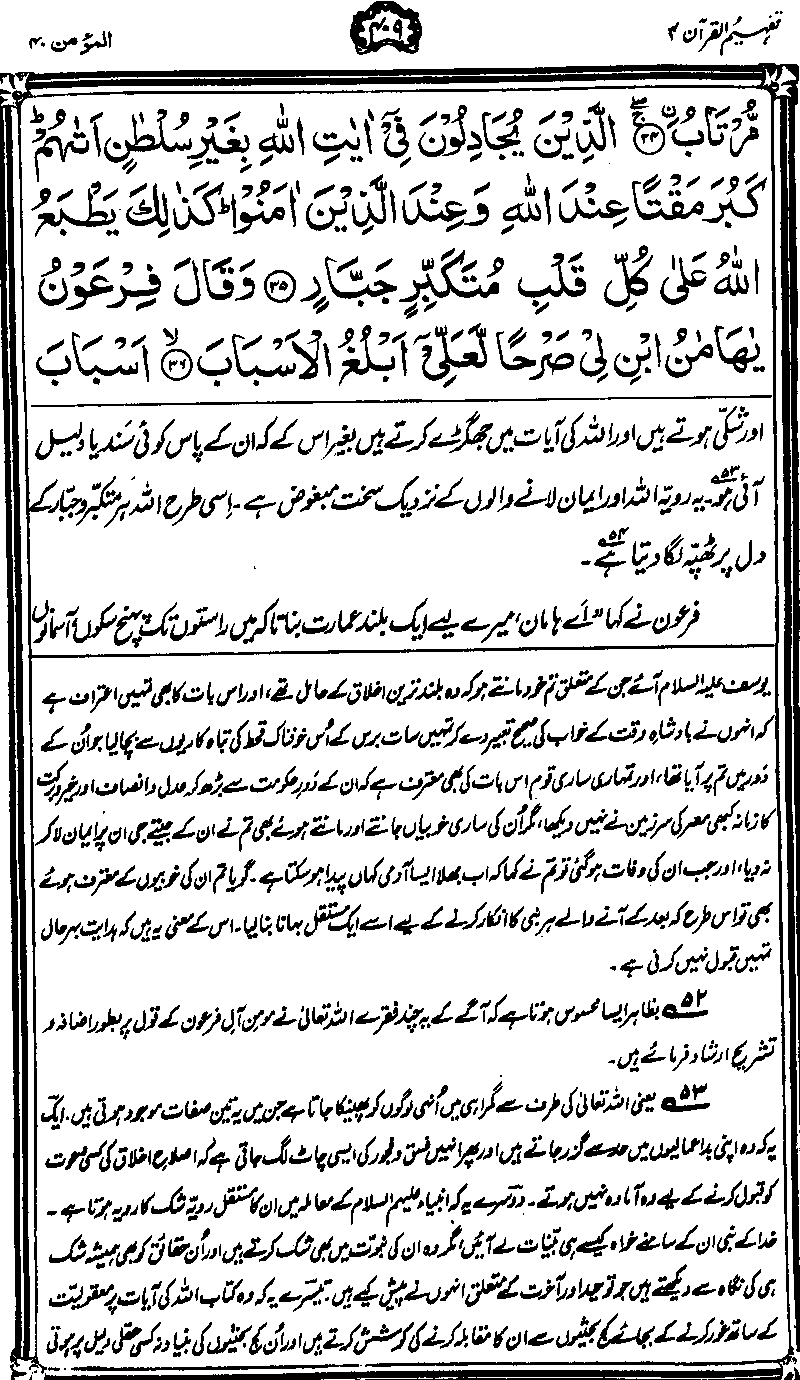 تفہیم القرآن ۴
۴۰۹
المؤمن ۴۰
مُّرْتَابٌ ۝۳۴ الَّذِيْنَ يُجَادِلُوْنَ فِيْٓ اٰيٰتِ اللّٰهِ بِغَيْرِ سُلْطٰنٍ اَتٰىهُمْ ؕ
كَبُرَ مَقْتًا عِنْدَ اللّٰهِ وَعِنْدَ الَّذِيْنَ اٰمَنُوْا ؕ كَذٰلِكَ يَطْبَعُ
اللّٰهُ عَلٰى كُلِّ قَلْبِ مُتَكَبِّرٍ جَبَّارٍ ۝۳۵ وَقَالَ فِرْعَوْنُ
يٰهَامٰنُ ابْنِ لِيْ صَرْحًا لَّعَلِّيْٓ اَبْلُغُ الْاَسْبَابَ ۝۳۶ۙ اَسْبَابَ
اور شکّی ہوتے ہیں اور اللہ کی آیات میں جھگڑے کرتے ہیں بغیر اس کے کہ ان کے پاس کوئی سَند یا دلیل
آئی ہو۵۳۔ یہ رویّہ اللہ اور ایمان لانے والوں کے نزدیک سخت مبغوض ہے۔ اِسی طرح اللہ ہر متکبّر و جبّار کے
دل پر ٹھپّہ لگا دیتا ہے۵۴۔
فرعون نے کہا ”اَے ہامان، میرے لیے ایک بلند عمارت بنا تاکہ میں راستوں تک پہنچ سکوں، آسمانوں
یوسف علیہ السلام آئے جن کے متعلق تم خود مانتے ہو کہ وہ بلند ترین اخلاق کے حامل تھے، اور اس بات کا بھی تمہیں اعتراف ہے
کہ انہوں نے بادشاہِ وقت کے خواب کی صحیح تعبیر دے کر تمہیں سات برس کے اُس خوفناک قحط کی تباہ کاریوں سے بچا لیا جو اُن کے
دَور میں تم پر آیا تھا، اور تمہاری ساری قوم اس بات کی بھی معترف ہے کہ ان کے دَورِ حکومت سے بڑھ کر عدل و انصاف اور خیر و برکت
کا زمانہ کبھی مصر کی سرزمین نے نہیں دیکھا، مگر اُن کی ساری خوبیاں جانتے اور مانتے ہوئے بھی تم نے ان کے جیتے جی ان پر ایمان لا کر
نہ دیا، اور جب ان کی وفات ہو گئی تو تم نے کہا کہ اب بھلا ایسا آدمی کہاں پیدا ہو سکتا ہے۔ گویا تم ان کی خوبیوں کے معترف ہوئے
بھی تو اس طرح کہ بعد کے آنے والے ہر نبی کا انکار کرنے کے لیے اسے ایک مستقل بہانا بنا لیا۔ اس کے معنی یہ ہیں کہ ہدایت بہرحال
تمہیں قبول نہیں کرنی ہے۔
۵۲ بظاہر ایسا محسوس ہوتا ہے کہ آگے کے یہ چند فقرے اللہ تعالیٰ نے مومنِ آلِ فرعون کے قول پر بطور اضافہ و
تشریح ارشاد فرمائے ہیں۔
۵۳ یعنی اللہ تعالیٰ کی طرف سے گمراہی میں اُنہی لوگوں کو پھینکا جاتا ہے جن میں یہ تین صفات موجود ہوتی ہیں۔ ایک
یہ کہ وہ اپنی بداعمالیوں میں حد سے گزر جاتے ہیں اور پھر انہیں فسق و فجور کی ایسی چاٹ لگ جاتی ہے کہ اصلاحِ اخلاق کی کسی دعوت
کو قبول کرنے کے لیے وہ آمادہ نہیں ہوتے۔ دوسرے یہ کہ انبیاء علیہم السلام کے معاملہ میں ان کا مستقل رویّہ شک کا رویہ ہوتا ہے۔
خدا کے نبی ان کے سامنے خواہ کیسے ہی بیّنات لے آئیں، مگر وہ ان کی نبوت میں بھی شک کرتے ہیں اور اُن حقائق کو بھی ہمیشہ شک
ہی کی نگاہ سے دیکھتے ہیں جو توحید اور آخرت کے متعلق انہوں نے پیش کیے ہیں۔ تیسرے یہ کہ وہ کتاب اللہ کی آیات پر معقولیت
کے ساتھ غور کرنے کے بجائے کج بحثیوں سے ان کا مقابلہ کرنے کی کوشش کرتے ہیں اور اُن کج بحثیوں کی بنیاد نہ کسی عقلی دلیل پر ہوتی